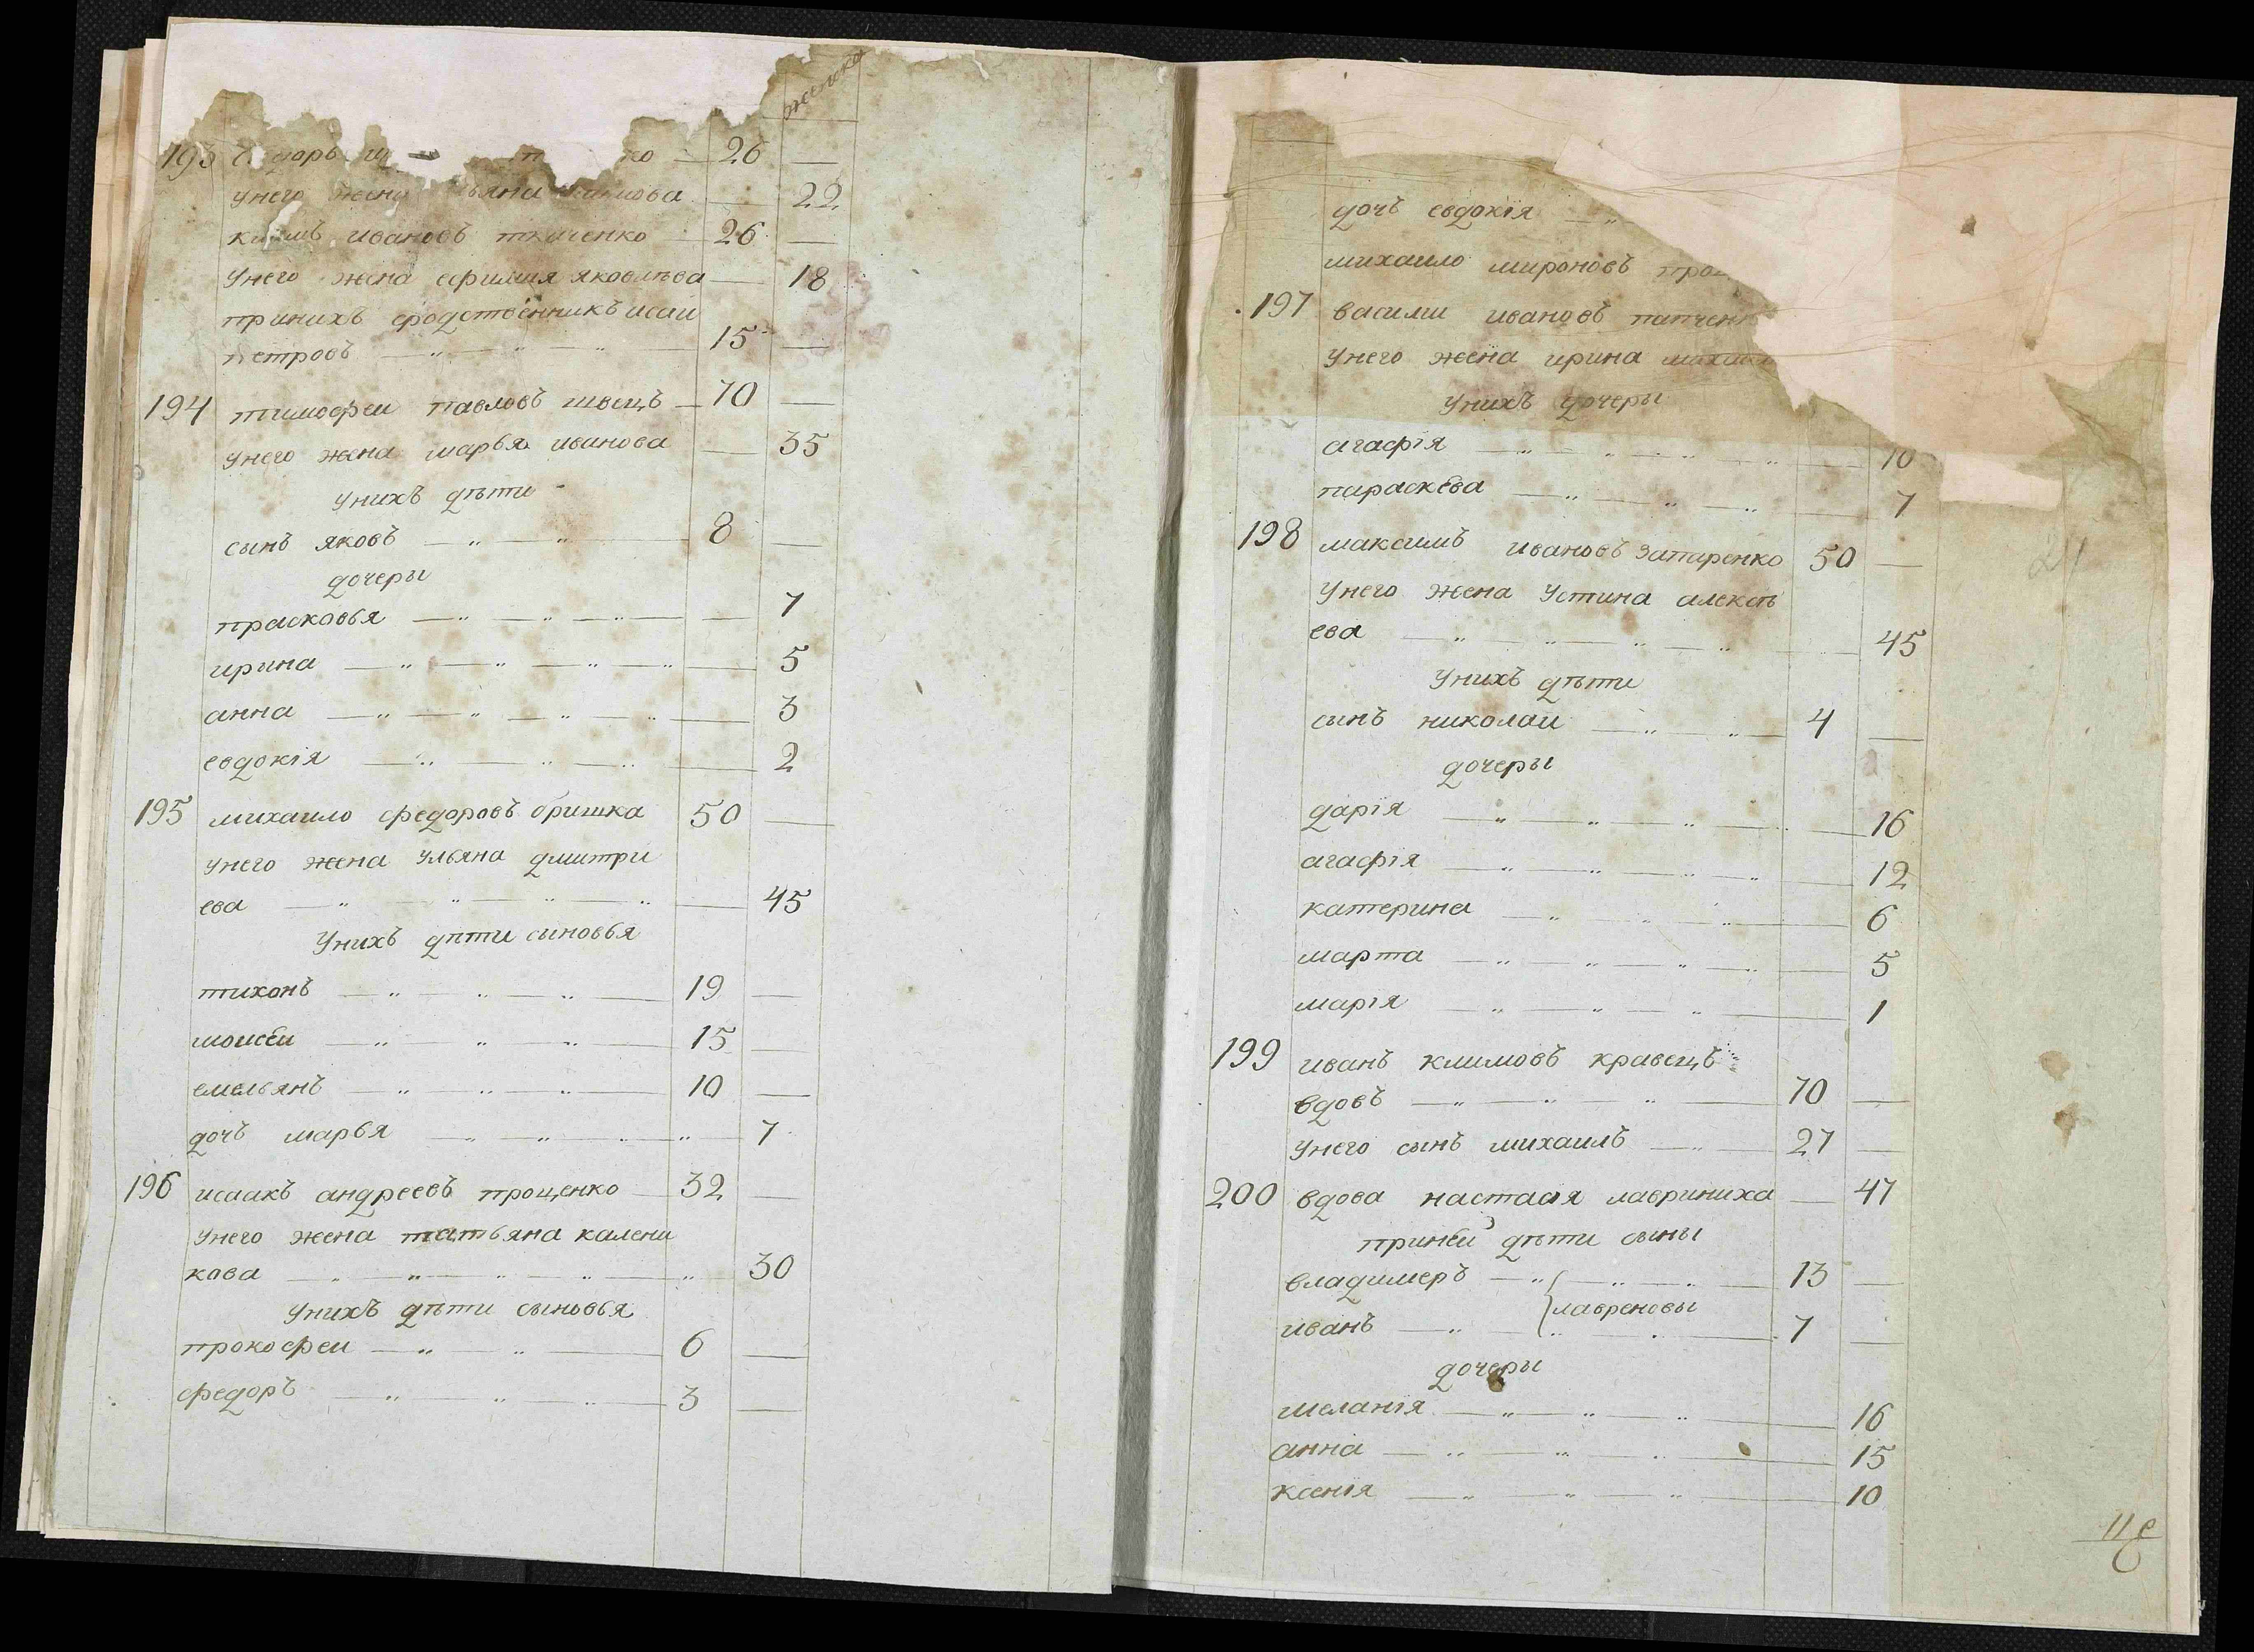 женска
193 26 —
унего жена — 22
ивановъ ткаченко — 26 —
унего жена ефимия яковлѣва — 18
принихъ сродственникъ исаи
петровъ — 15 —
194 тимофеи павловъ швецъ — 70 —
унего жена марья иванова — 35
унихъ дѣти
сынъ яковъ — 8 —
дочеры
прасковья — 7
ирина — 5
анна — 3
евдокія — 2
195 михаило федоровъ бришка 50 —
унего жена ульяна дмитри
ева — 45
унихъ дѣти сыновья
тихонъ — 19 —
моисеи — 15 —
емельянъ — 10 —
дочь марья — 7
196 исаакъ андреевъ проценко — 32 —
унего жена татьяна калени
кова — 30
унихъ дѣти сыновья
прокофеи — 6 —
федоръ — 3 —
дочь евдокія —
михаило мироновъ
197 васили ивановъ
унего жена ирина
унихъ дочеры
агафія — 10
параскева — 7
198 максимъ ивановъ запаренко 50 —
унего жена устина алексѣ
ева — 45
унихъ дѣти
сынъ николаи — 4 —
дочеры
дарія — 16
агафія — 12
катерина — 6
марта — 5
марія — 1
199 иванъ климовъ кравецъ
вдовъ — 70 —
унего сынъ михаилъ — 27 —
200 вдова настася лавриниха — 47
принеи дѣти сыны
владимеръ — 13 —
лавреновы
иванъ — 7 —
дочеры
меланія — 16
анна — 15
ксенія — 10